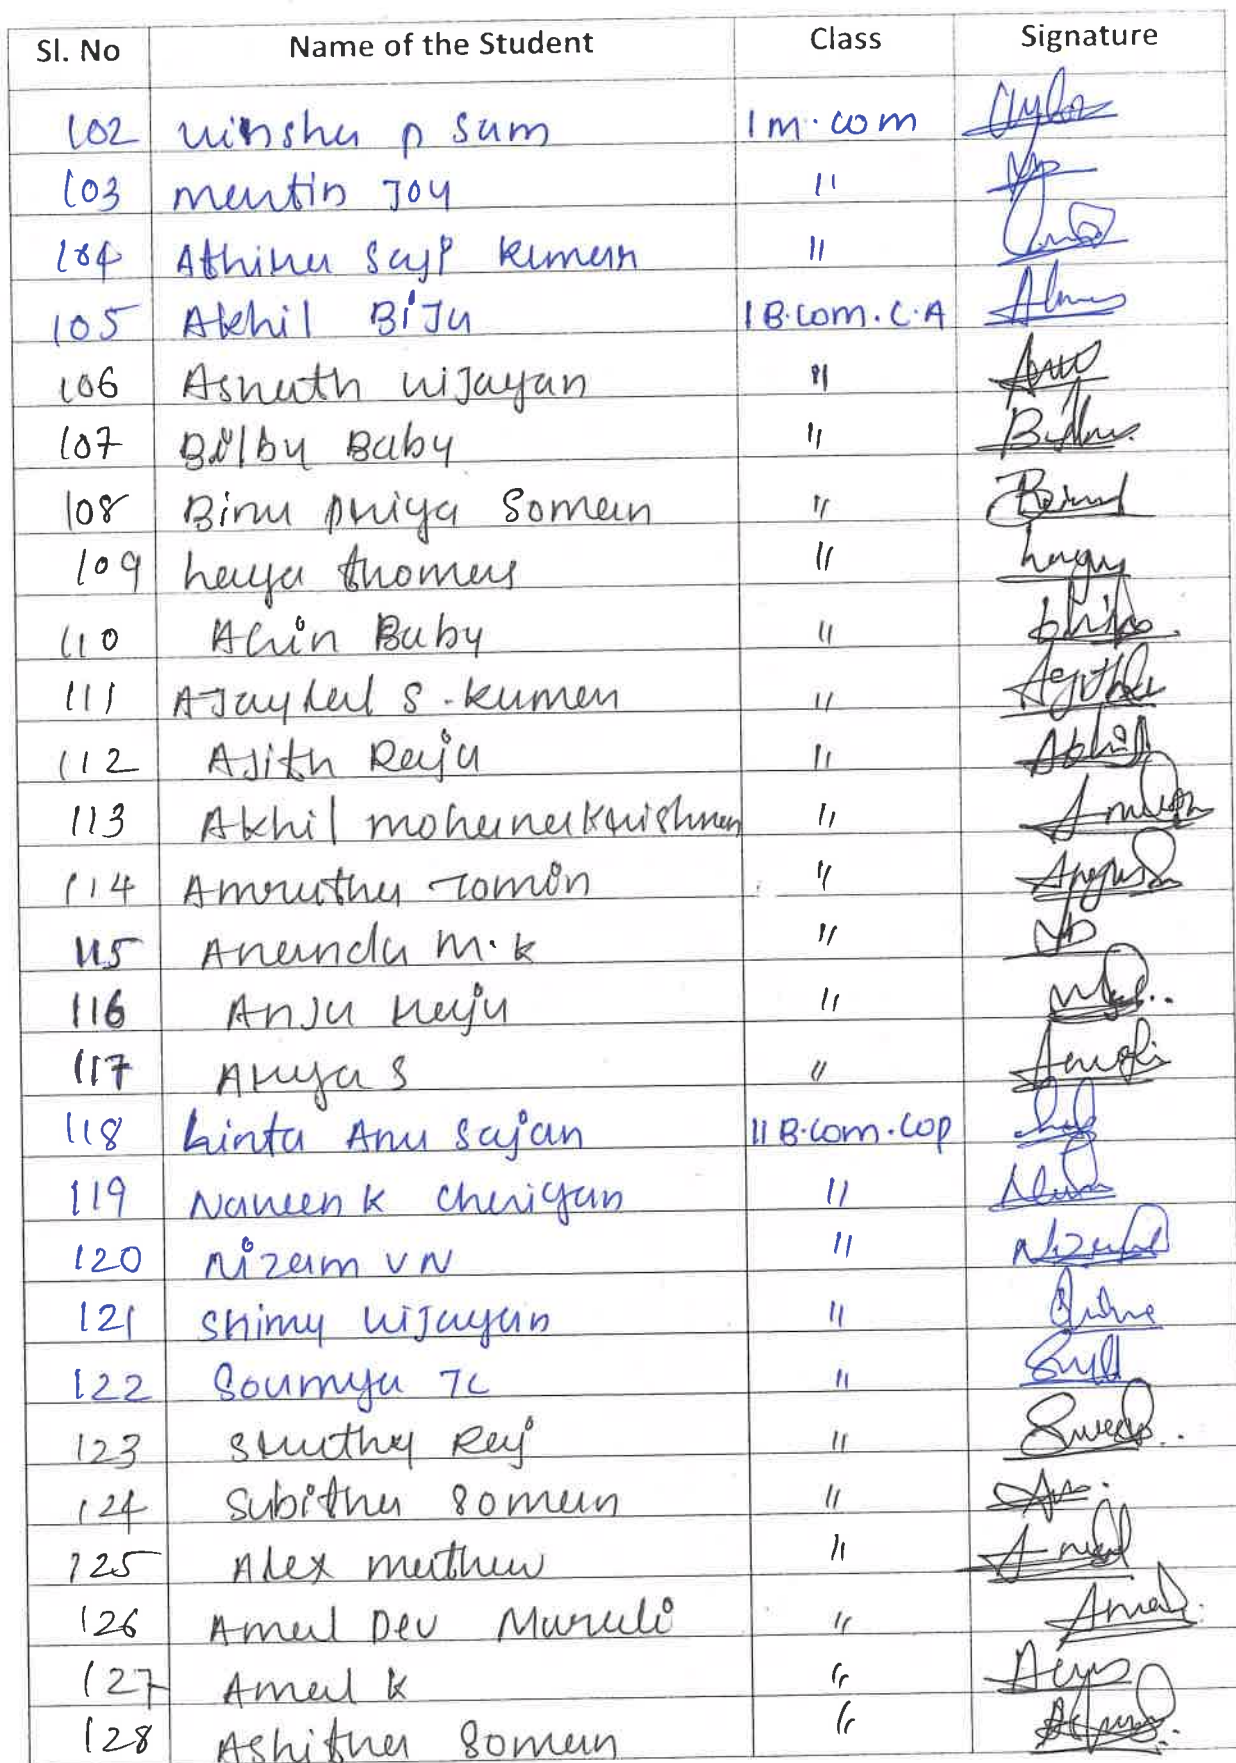 Sl. No Name of the Student Class Signature
102 Vinsha P Sam I M.com
103 Mentin Joy "
104 Athira Saji Kumar "
105 Akhil Biju I B.com.C.A
106 Asnath Vijayan "
107 Bilby Baby "
108 Binu Priya Soman "
109 Laya Thomas "
110 Baby "
111 Ajaylal S.Kumar "
112 Ajith Raju "
113 Akhil Mohanakrishnan "
114 Amrutha Tomin "
115 Anandu M.K "
116 Anju Raju "
117 Arya S "
118 Linta Anu Sajan II B.com.Cop
119 Naveen K Cheriyan "
120 Nizam V N "
121 Shimy Vijayan "
122 Soumya T C "
123 Sruthy Raj "
124 Subitha Soman "
125 Alex Mathew "
126 Amal Dev Murali "
127 Amal K "
128 Ashitha Soman "